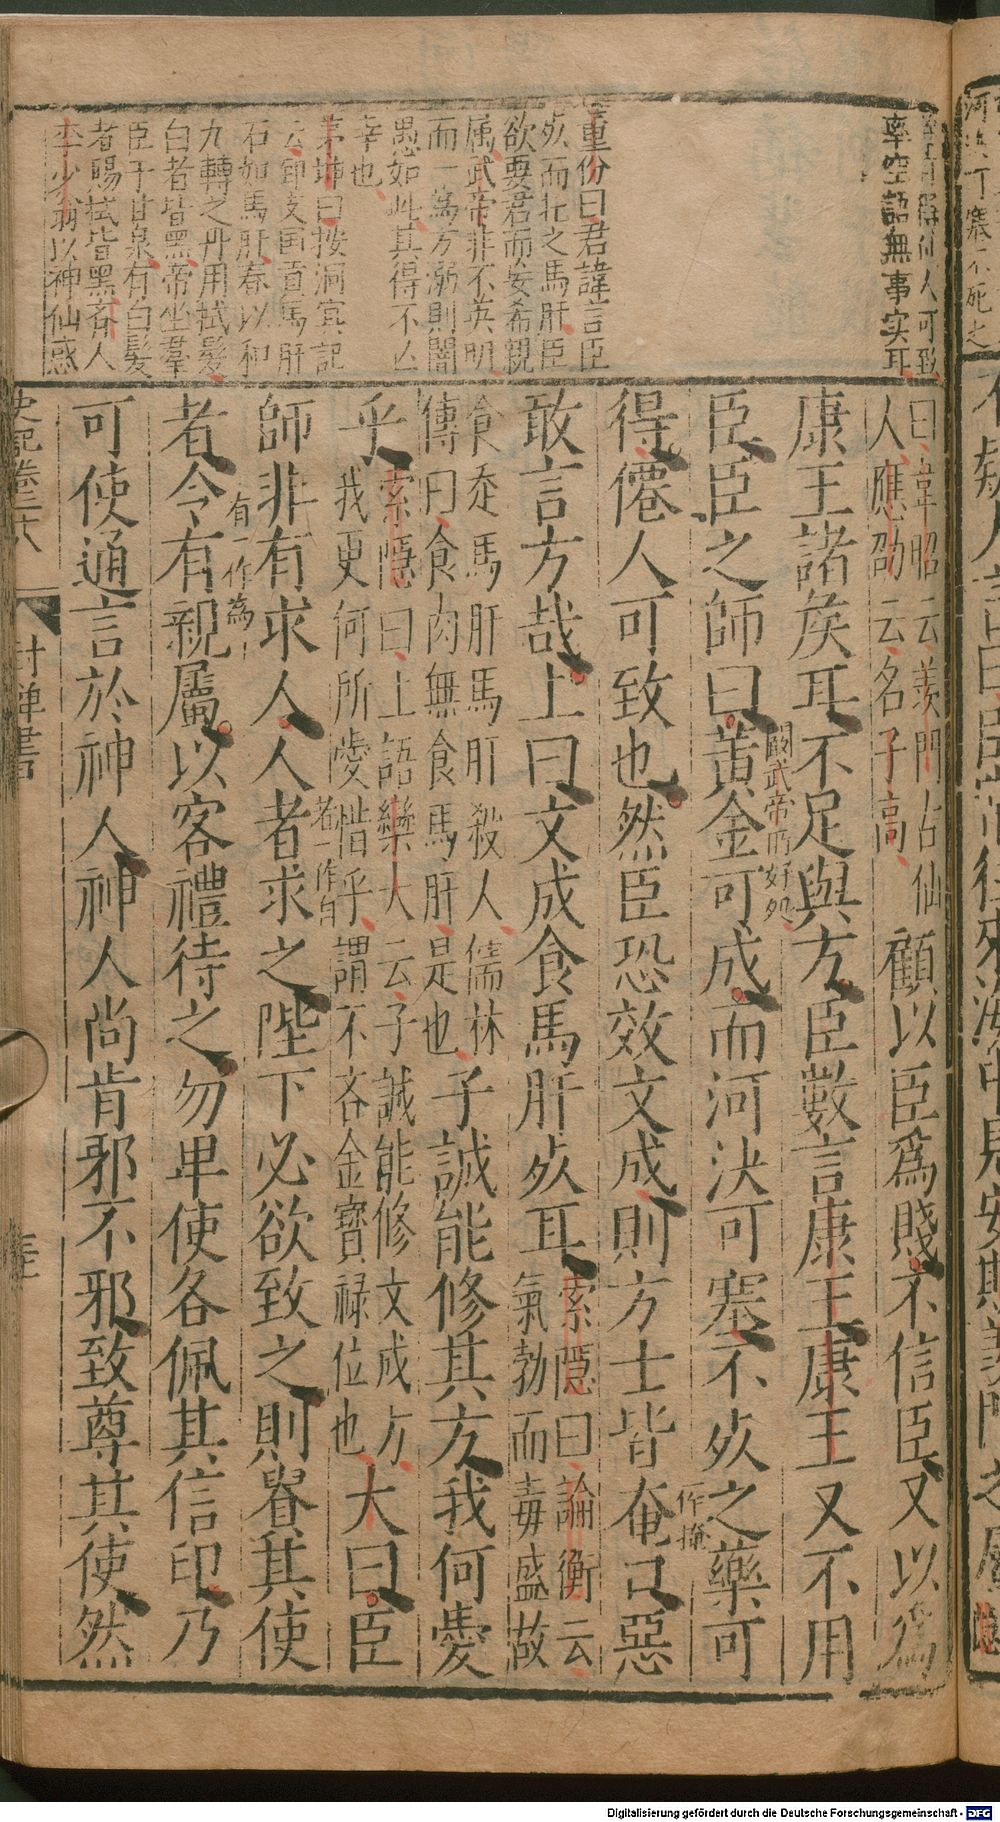 得仙人可致
率空語無事实耳
董份曰君諱言臣
死而扎之馬肝臣
欲要君而妄希親
属武帝非不英明
而一為方溺則闇
愚如此其得不亾
幸也
茅坤曰按洞冥記
云郅支国貢馬肝
石如馬肝春以和
九轉之丹用拭髮
白者皆黑帝坐羣
臣于甘泉有白髮
者賜拭皆黑吝人
李少翁以神仙惑
曰韋昭云羨門古仙
人應劭云名子高
顧以臣爲賤不信臣又以爲
康王諸矦耳不足與方臣數言康王康王又不用
武帝所好処
臣臣之師曰黃金可成而河決可塞不死之藥可
作掩
得僊人可致也然臣恐效文成則方士皆奄口惡
敢言方哉上曰文成食馬肝死耳
索隱曰論衡云
氣勃而毒盛故
食走馬肝馬肝殺人儒林
傳曰食肉無食馬肝是也
子誠能修其方我何愛
乎
索隱曰上語欒大云子誠能修文成方
我更何所愛惜乎謂不吝金寶祿位也
大曰臣
者一作自
師非有求人人者求之陛下必欲致之則貴其使
有一作為
者令有親屬以客禮待之勿卑使各佩其信印乃
可使通言於神人神人尚肯邪不邪致尊其使然
史記卷二十八 封禪書
Digitalisierung gefördert durch die Deutsche Forschungsgemeinschaft - DFG